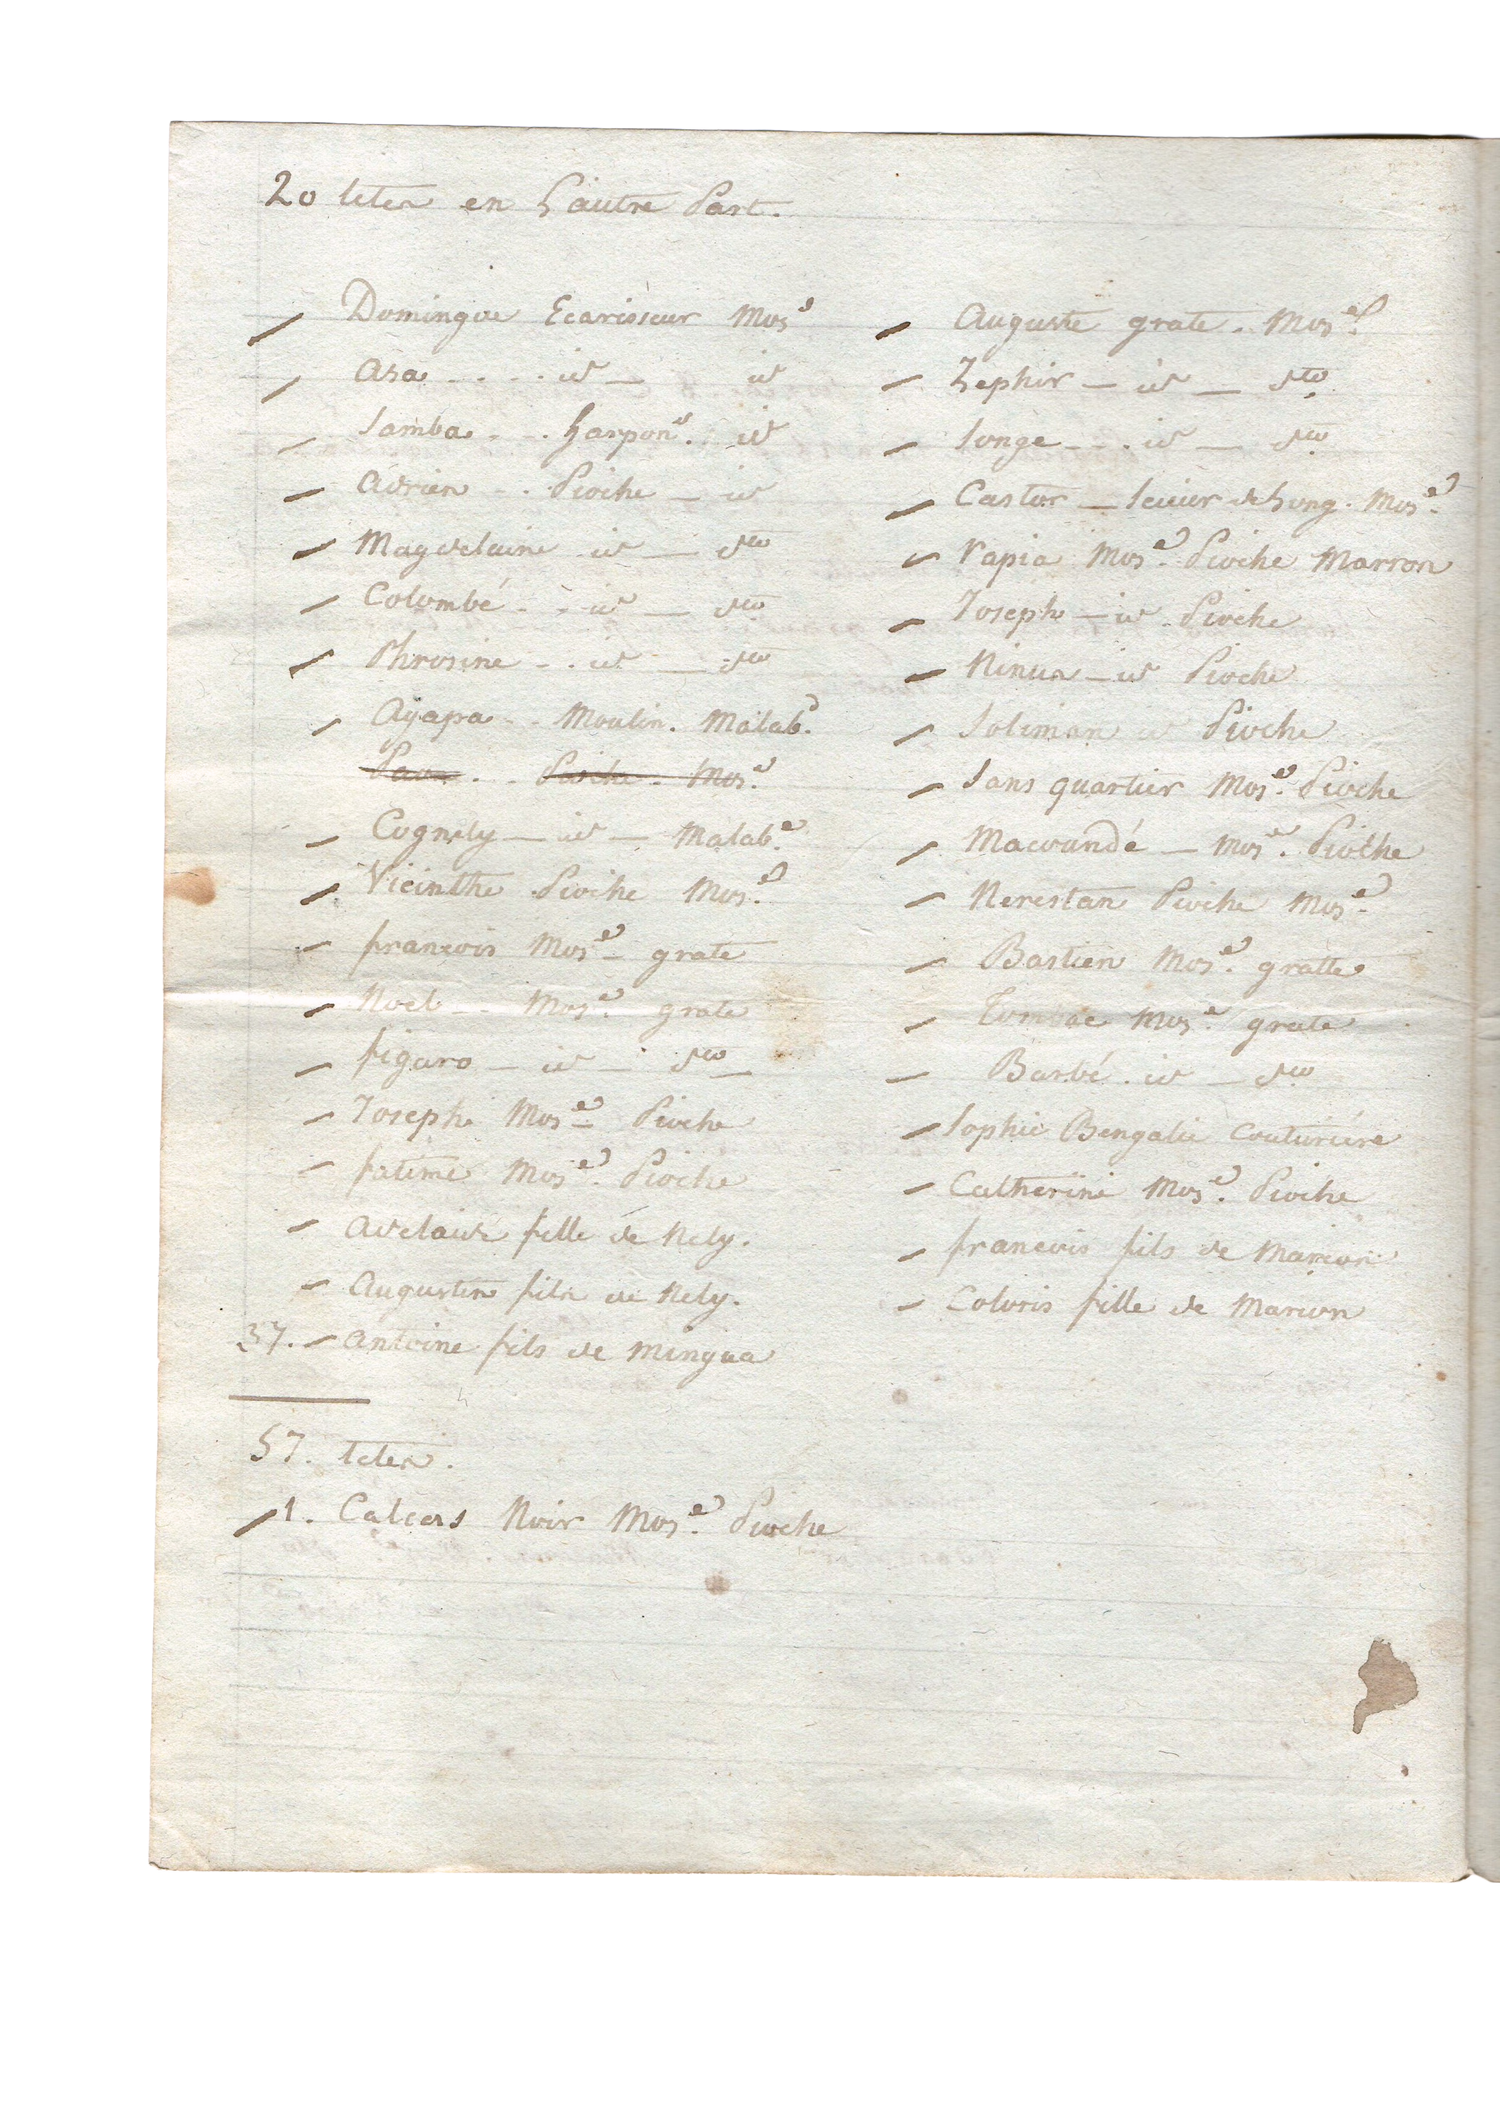 20 tetes en L'autre Part.
Domingue Ecarisseur Mos.e
Asa .... id — id
Samba .. harpon.r id
Adrien .. Pioche — id
Magdelaine id — dto
Colombé .. id — dto
Phrosine .. id — dto
Ayapa .. Moulin. Malab.e
Pioche . Mos.e
Cognely — id — Malab.e
Vicinthe Pioche Mos.e
francois Mos.e grate
Noel .. Mos.e grate
figaro — id — dto —
Joseph Mos.e Pioche
fatime Mos.e Pioche
Adelaide fille de Nely.
Augustin fils de Nely.
37. Antoine fils de Mingua
57. tetes.
1. Noir Mos.e Pioche
Auguste grate. Mos.e
Zephir — id — dto
Songe .. id — dto
Castor — Scieur de Long. Mos.e
Papia Mos.e Pioche Marron
Joseph — id Pioche
Ninus — id Pioche
Soliman id Pioche
Sans quartier Mos.e Pioche
Macoundé — Mos.e Pioche
Nerestan Pioche Mos.e
Bastien Mos.e gratte
Tombac Mos.e grate
Barbé . id — dto
Sophie Bengalie Couturiére
Catherine Mos.e Pioche
francois fils de Marion
Coloris fille de Marion